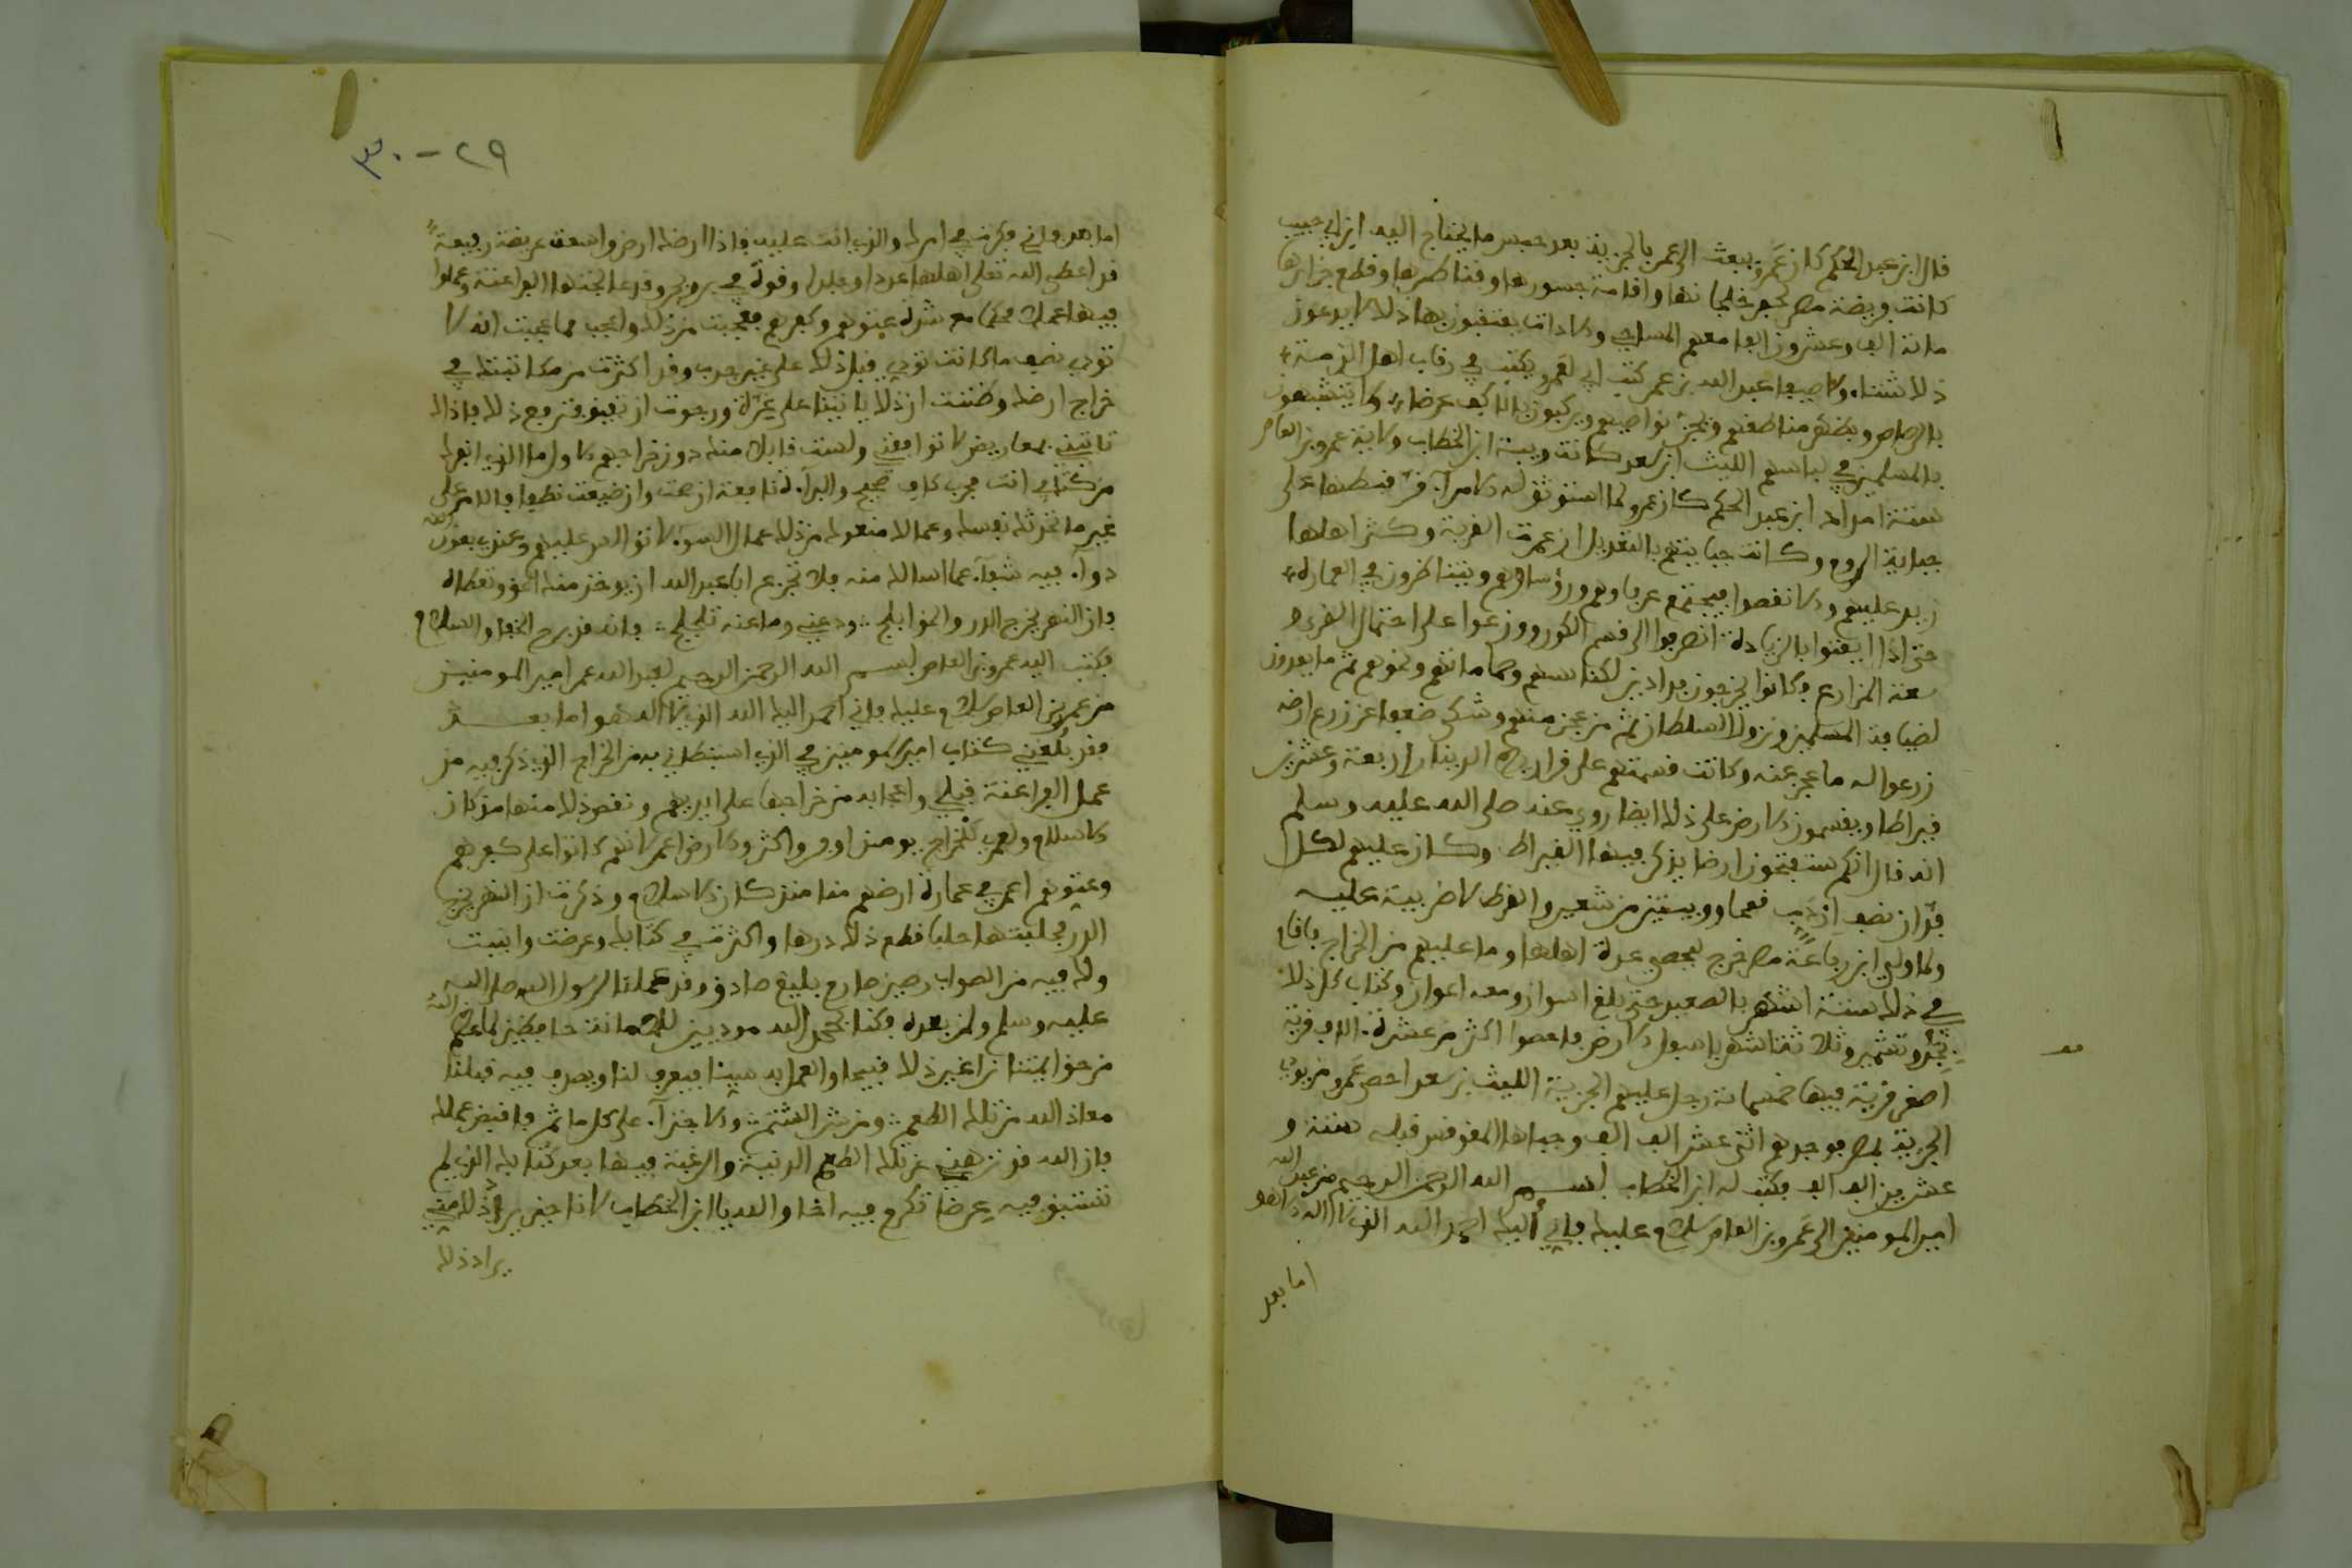 قال ابن عبد الحكم كان عَمرو يبعث الى عمر بالجزية بعد حبس ما يحتاج اليه ابن ابي حبيب
كانت فريضة مصر لحفر خليجانها واقامة جسورها وقناطرها وقطع جزايرها
مائة الف وعشرون الفا معهم المساحي والادات يعتقبون بها ذلك لا يدعون
ذلك شتاء ولا صيفا عبد الله بن عمر كتب ابي لعمرو يختم في رقاب اهل الذمة
بالرصاص ويظهر مناطقهم ونجز نواصيهم ويركبون بالاكف عرضا ولا يتشبهون
بالمسلمين في لباسهم الليث بن سعد كانت ويبة ابن الخطاب ولاية عمرو بن العاص
ستة امداد ابن عبد الحكم كان عمرو لما استوثق له الامر اقر قبطها على
جباية الروم وكانت جبايتهم بالتعديل ان عمرت القرية وكثر اهلها
زيد عليهم ولا نقصوا فيجتمع عرفاوهم ورؤساوهم ويتناظرون في العمارة
حتى اذا ايقنوا بالزيادة انصرفوا الى قسم الكور ووزعوا على احتمال القرى و
سعة المزارع فكانوا يخرجون فدادين لكنائسهم وحماماتهم ونحوهم ثم ما يعدون
لضيافة المسلمين ونزول السلطان ثم من عجز منهم وشكى ضعفا عن زرع ارضه
زرعوا له ما عجز عنه وكانت قسمتهم على قراريط الدينار اربعة وعشرين
قيراطا ويقسمون الارض على ذلك ايضا روي عنه صلى الله عليه وسلم
انه قال انكم ستفتحون ارضا يذكر فيها القيراط وكان عليهم لكل
فدان نصف اردب قمحا وويبتين من شعير والقرط لا ضريبة عليه
ولما ولي ابن رفاعة مصر خرج ليحصي عدة اهلها وما عليهم من الخراج فاقام
في ذلك ستة اشهر بالصعيد حتى بلغ اسوان ومعه اعوان وكتاب كل ذلك
بجد وتشمير وثلاثة اشهر باسفل الارض فاحصوا اكثر من عشرة الاف قرية
اصغر قرية فيها خمسمائة رجل عليهم الجزية الليث بن سعد احصى عمرو من يودي
الجزية بمصر فوجدهم اثني عشر الف الف وجباها المقوقس قبله سنة و
عشرين الف الف فكتب له ابن الخطاب بسم الله الرحمن الرحيم من عبد الله
امير المومنين الى عَمرو بن العاص سلام عليك فاني اليك احمد الله الذي لا اله الا هو
اما بعد
٢٩-٣٠
اما بعد فاني فكرت في امرك والذي انت عليه فاذا ارضك ارض واسعة عريضة رفيعة
قد اعطى الله تعلى اهلها عددا وجلدا وقوة في بر وبحر وقد عالجتها الفراعنة وعملوا
فيها عملا محكما مع شدة عتوهم وكفرهم فعجبت من ذلك واعجب مما عجبت انه لا
تودي نصف ما كانت تودي قبل ذلك على غير جدب وقد اكثرت من مكاتبتك في
خراج ارضك وظننت ان ذلك ياتينا على غرة ورجوت ان تفيق فترفع ذلك فاذا
تاتيني بمعاريض لا توافقني ولست قابلا منك دون خراجهم الاول ما الذي انفرك
من كتابي انت مجرب كاف صحيح والبراة نافعة ان صحت وان ضيعت نطفا فالامر على
غير ما تحدث نفسك وعمالك منعوك من ذلك عمال السوء لا توالي عليهم وعندي بعون الله
دواء فيه شفاء عما اسالك منه فلا تجزع ابا عبد الله ان يوخذ منك الحق وتعطاه
فان النهر يخرج الدر والحق ابلج ودعني وما عنه تلجلج فانه قد برح الخفا والسلام
فكتب اليه عمرو بن العاص بسم الله الرحمن الرحيم لعبد الله عمر امير المومنين
من عمرو بن العاص سلام عليك فاني احمد اليك الله الذي لا اله هو اما بعد
فقد بلغني كتاب امير المومنين في الذي استبطاني به من الخراج الذي ذكر فيه من
عمل الفراعنة قبلي واعجابه من خراجها على ايديهم ونقص ذلك منها مذ كان
الاسلام ولعمري للخراج يومئذ اوفر واكثر والارض اعمر لانهم كانوا على كفرهم
وعتوهم اعمر في عمارة ارضهم منا منذ كان الاسلام وذكرت ان النهر يخرج
الدر فحلبتها حلبا قطع ذلك درها واكثرت في كتابك وعرضت وانبت
وله فيه من الصواب رصين صارم بليغ صادق وقد عملنا لرسول الله صلى الله
عليه وسلم ولمن بعده فكنا بحمد الله مودين للامانة حافظين لما عظم الله
من حق ايمتنا نرا غير ذلك قبيحا والعمل به سيئا فيعرف لنا ويصرف فيه قبلنا
معاذ الله من تلك الطعم ومن شر الشيم والاجتراء على كل ماثم فاقبض عملك
فان الله قد نزهني عن تلك الطعم الدنية والرغبة فيها بعد كتابك الذي لم
تستبق فيه عرضا تكرم فيه اخا والله يا ابن الخطاب لانا حين يراد ذلك مني
يراد ذلك